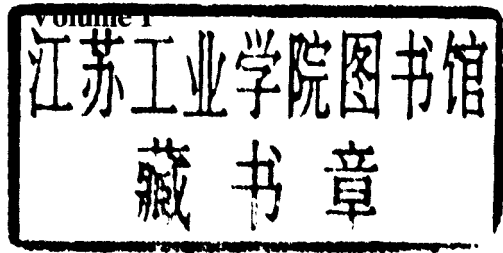 Volume 1
江苏工业学院图书馆
藏书章